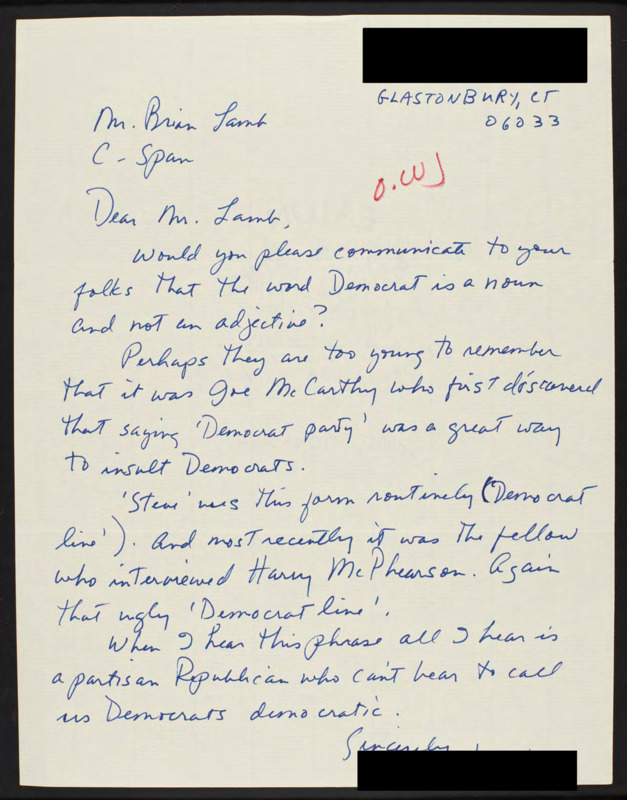 GLASTONBURY, CT
06033
Mr. Brian Lamb
C-Span
Dear Mr. Lamb,
Would you please communicate to your
folks that the word Democrat is a noun
and not an adjective?
Perhaps they are too young to remember
that it was Joe McCarthy who first discovered
that saying 'Democrat party' was a great way
to insult Democrats.
'Steve' uses this form routinely ('Democrat
line'). And most recently it was the fellow
who interviewed Harry McPhearson. Again
that ugly 'Democrat line'.
When I hear this phrase all I hear is
a partisan Republican who can't bear to call
us Democrats democratic.
Sincerely